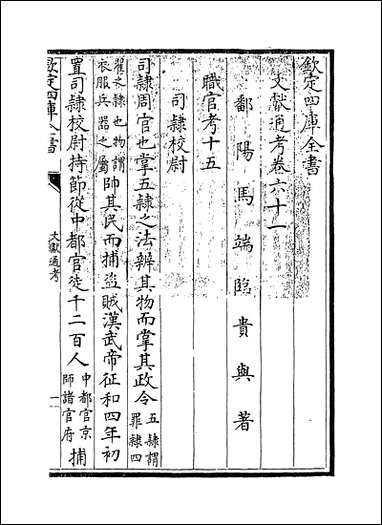 欽定四庫全書
文獻通考卷六十一
鄱陽馬端臨貴與著
職官考十五
司隷校尉
司隷周官也掌五隷之法辨其物而掌其政令五隷謂罪隷四
翟之隷也物謂衣服兵器之屬帥其民而捕盜賊漢武帝征和四年初
置司隷校尉持節從中都官徒千二百人中都官京師諸官府捕
欽定四庫全書
文獻通考
一